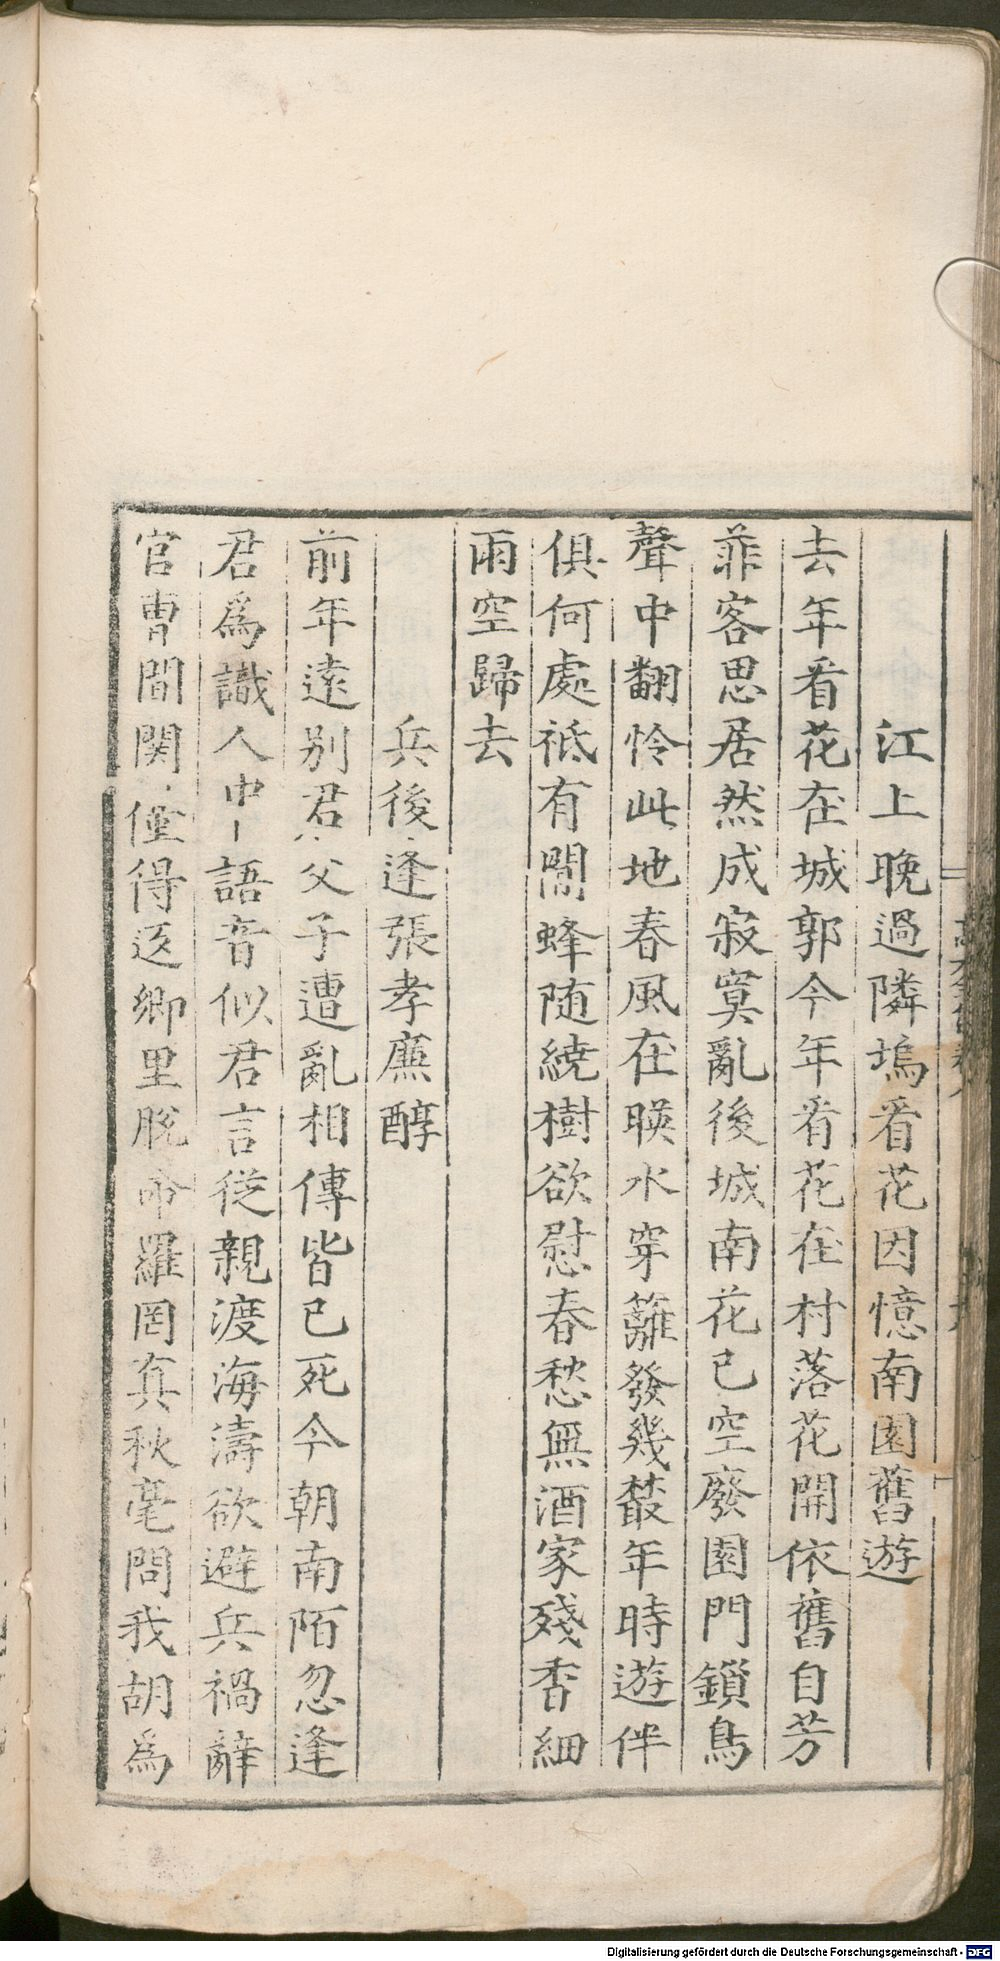 江上晚過隣塢看花因憶南園舊遊
去年看花在城郭今年看花在村落花開依舊自芳
菲客思居然成寂寞亂後城南花已空廢園門鎖鳥
聲中翻怜此地春風在暎水穿籬發幾叢年時遊伴
俱何處祗有閙蜂随繞樹欲慰春愁無酒家殘香細
雨空歸去
兵後逢張孝廉醇
前年遠别君父子遭亂相傳皆已死今朝南陌忽逢
君爲識人中語音似君言從親渡海濤欲避兵禍辭
官曹間関僅得返鄉里脫命羅罔真秋毫問我胡爲
Digitalisierung gefördert durch die Deutsche Forschungsgemeinschaft - DFG